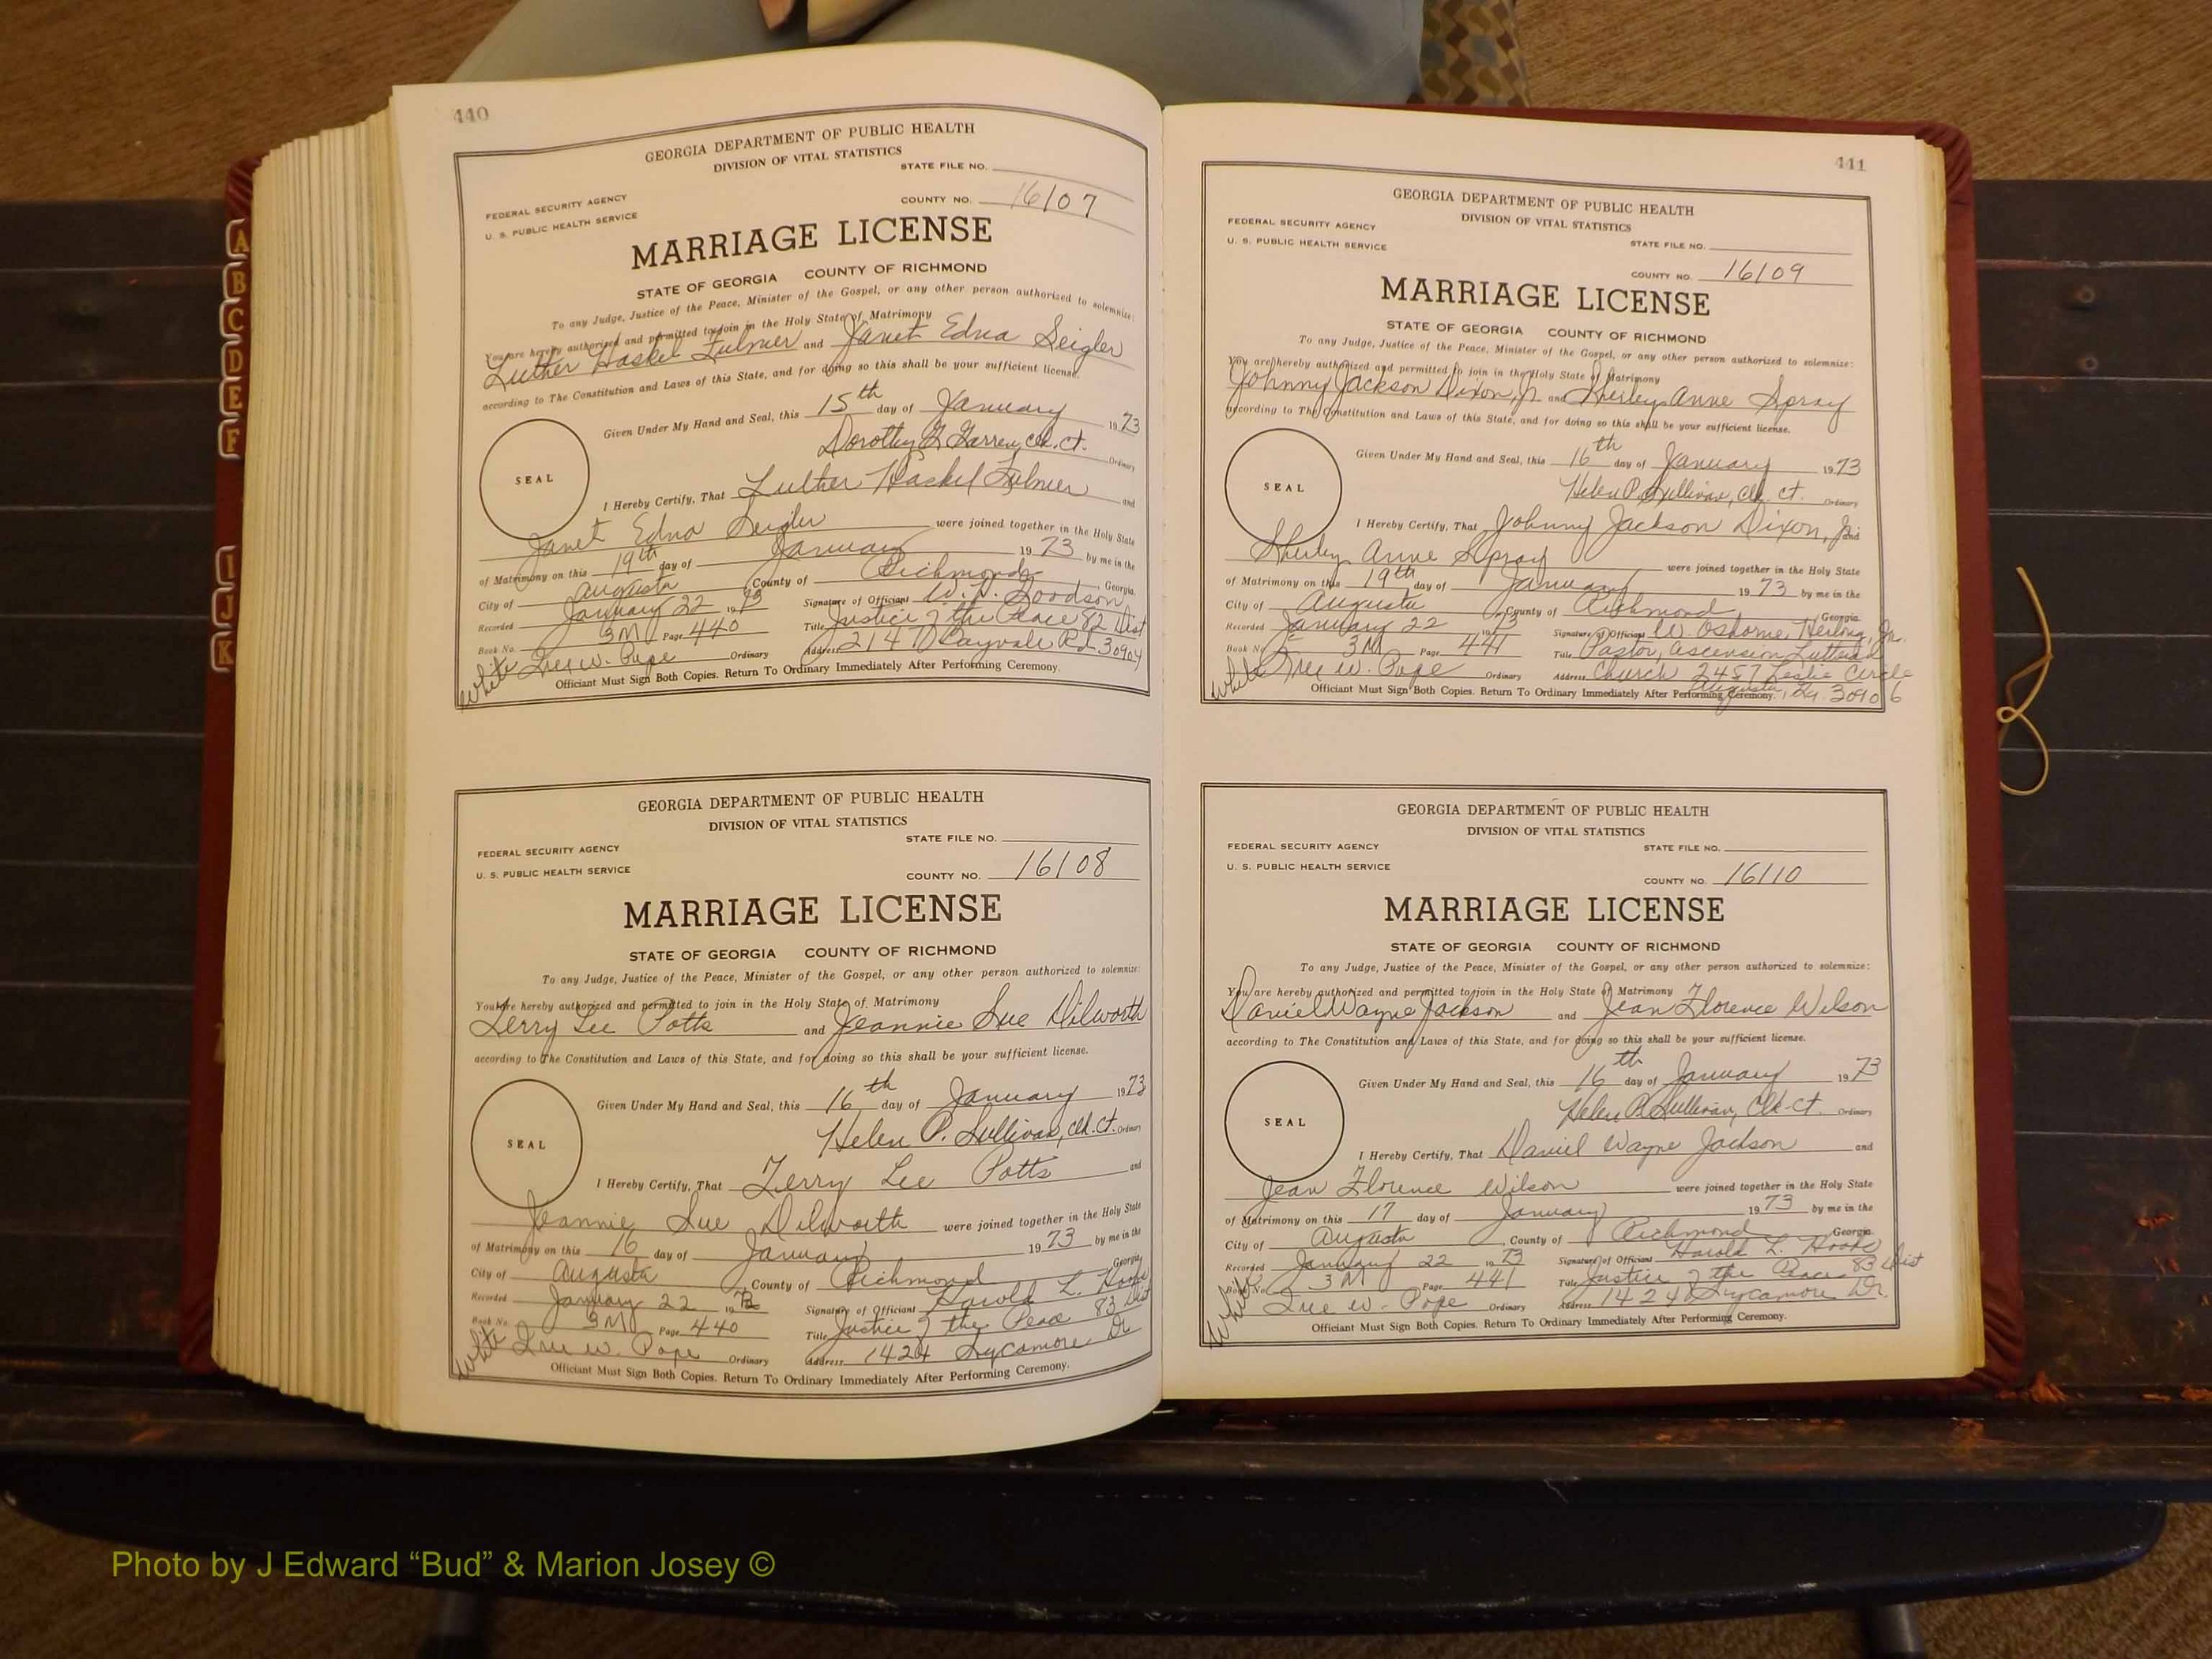 440
GEORGIA DEPARTMENT OF PUBLIC HEALTH
DIVISION OF VITAL STATISTICS
STATE FILE NO.
FEDERAL SECURITY AGENCY
U. S. PUBLIC HEALTH SERVICE
COUNTY NO. 16107
MARRIAGE LICENSE
STATE OF GEORGIA COUNTY OF RICHMOND
To any Judge, Justice of the Peace, Minister of the Gospel, or any other person authorized to solemnize:
You are hereby authorized and permitted to join in the Holy State of Matrimony
Luther Haskel Fulmer and Janet Edna Seigler
according to The Constitution and Laws of this State, and for doing so this shall be your sufficient license.
Given Under My Hand and Seal, this 15th day of January 1973
Dorothy Garren, Clk. Ct. Ordinary
SEAL
I Hereby Certify, That Luther Haskel Fulmer and
Janet Edna Seigler were joined together in the Holy State
of Matrimony on this 19th day of January 1973 by me in the
City of Augusta County of Richmond Georgia.
Recorded January 22 1973 Signature of Officiant W. D. Goodson
Book No. 3M Page 440 Title Justice of the Peace 82 Dist
White Sue W. Pope Ordinary Address 2147 Bayvale Rd 30904
Officiant Must Sign Both Copies. Return To Ordinary Immediately After Performing Ceremony.
GEORGIA DEPARTMENT OF PUBLIC HEALTH
DIVISION OF VITAL STATISTICS
STATE FILE NO.
FEDERAL SECURITY AGENCY
U. S. PUBLIC HEALTH SERVICE
COUNTY NO. 16108
MARRIAGE LICENSE
STATE OF GEORGIA COUNTY OF RICHMOND
To any Judge, Justice of the Peace, Minister of the Gospel, or any other person authorized to solemnize:
You are hereby authorized and permitted to join in the Holy State of Matrimony
Terry Lee Potts and Jeannie Sue Dilworth
according to The Constitution and Laws of this State, and for doing so this shall be your sufficient license.
Given Under My Hand and Seal, this 16th day of January 1973
Helen P. Sullivan, Clk. Ct. Ordinary
SEAL
I Hereby Certify, That Terry Lee Potts and
Jeannie Sue Dilworth were joined together in the Holy State
of Matrimony on this 16 day of January 1973 by me in the
City of Augusta County of Richmond Georgia.
Recorded January 22 1973 Signature of Officiant Harold L.
Book No. 3M Page 440 Title Justice of the Peace 83 Dist
White Sue W. Pope Ordinary Address 1424 Sycamore Dr
Officiant Must Sign Both Copies. Return To Ordinary Immediately After Performing Ceremony.
441
GEORGIA DEPARTMENT OF PUBLIC HEALTH
DIVISION OF VITAL STATISTICS
FEDERAL SECURITY AGENCY
U. S. PUBLIC HEALTH SERVICE
STATE FILE NO.
COUNTY NO. 16109
MARRIAGE LICENSE
STATE OF GEORGIA COUNTY OF RICHMOND
To any Judge, Justice of the Peace, Minister of the Gospel, or any other person authorized to solemnize:
You are hereby authorized and permitted to join in the Holy State of Matrimony
Johnny Jackson Dixon, Jr. and Sherley Anne Spray
according to The Constitution and Laws of this State, and for doing so this shall be your sufficient license.
Given Under My Hand and Seal, this 16th day of January 1973
Helen P. Sullivan, Clk. Ct. Ordinary
SEAL
I Hereby Certify, That Johnny Jackson Dixon, Jr. and
Sherley Anne Spray were joined together in the Holy State
of Matrimony on this 19th day of January 1973 by me in the
City of Augusta County of Richmond Georgia.
Recorded January 22 1973 Signature of Officiant W. Osborne Herlong, Jr.
Book No. 3M Page 441 Title Pastor, Ascension Lutheran
White Sue W. Pope Ordinary Address Church 2457 Leslie Circle
Augusta, Ga. 30906
Officiant Must Sign Both Copies. Return To Ordinary Immediately After Performing Ceremony.
GEORGIA DEPARTMENT OF PUBLIC HEALTH
DIVISION OF VITAL STATISTICS
FEDERAL SECURITY AGENCY
STATE FILE NO.
U. S. PUBLIC HEALTH SERVICE
COUNTY NO. 16110
MARRIAGE LICENSE
STATE OF GEORGIA COUNTY OF RICHMOND
To any Judge, Justice of the Peace, Minister of the Gospel, or any other person authorized to solemnize:
You are hereby authorized and permitted to join in the Holy State of Matrimony
Daniel Wayne Jackson and Jean Florence Wilson
according to The Constitution and Laws of this State, and for doing so this shall be your sufficient license.
Given Under My Hand and Seal, this 16th day of January 1973
Helen P. Sullivan, Clk. Ct. Ordinary
SEAL
I Hereby Certify, That Daniel Wayne Jackson and
Jean Florence Wilson were joined together in the Holy State
of Matrimony on this 17 day of January 1973 by me in the
City of Augusta, County of Richmond Georgia.
Recorded January 22 1973 Signature of Officiant Harold L.
Book No. 3M Page 441 Title Justice of the Peace 83 Dist
White Sue W. Pope Ordinary Address 1424 Sycamore Dr.
Officiant Must Sign Both Copies. Return To Ordinary Immediately After Performing Ceremony.
A
B
C
D
E
F
I
J
K
Photo by J Edward “Bud” & Marion Josey ©